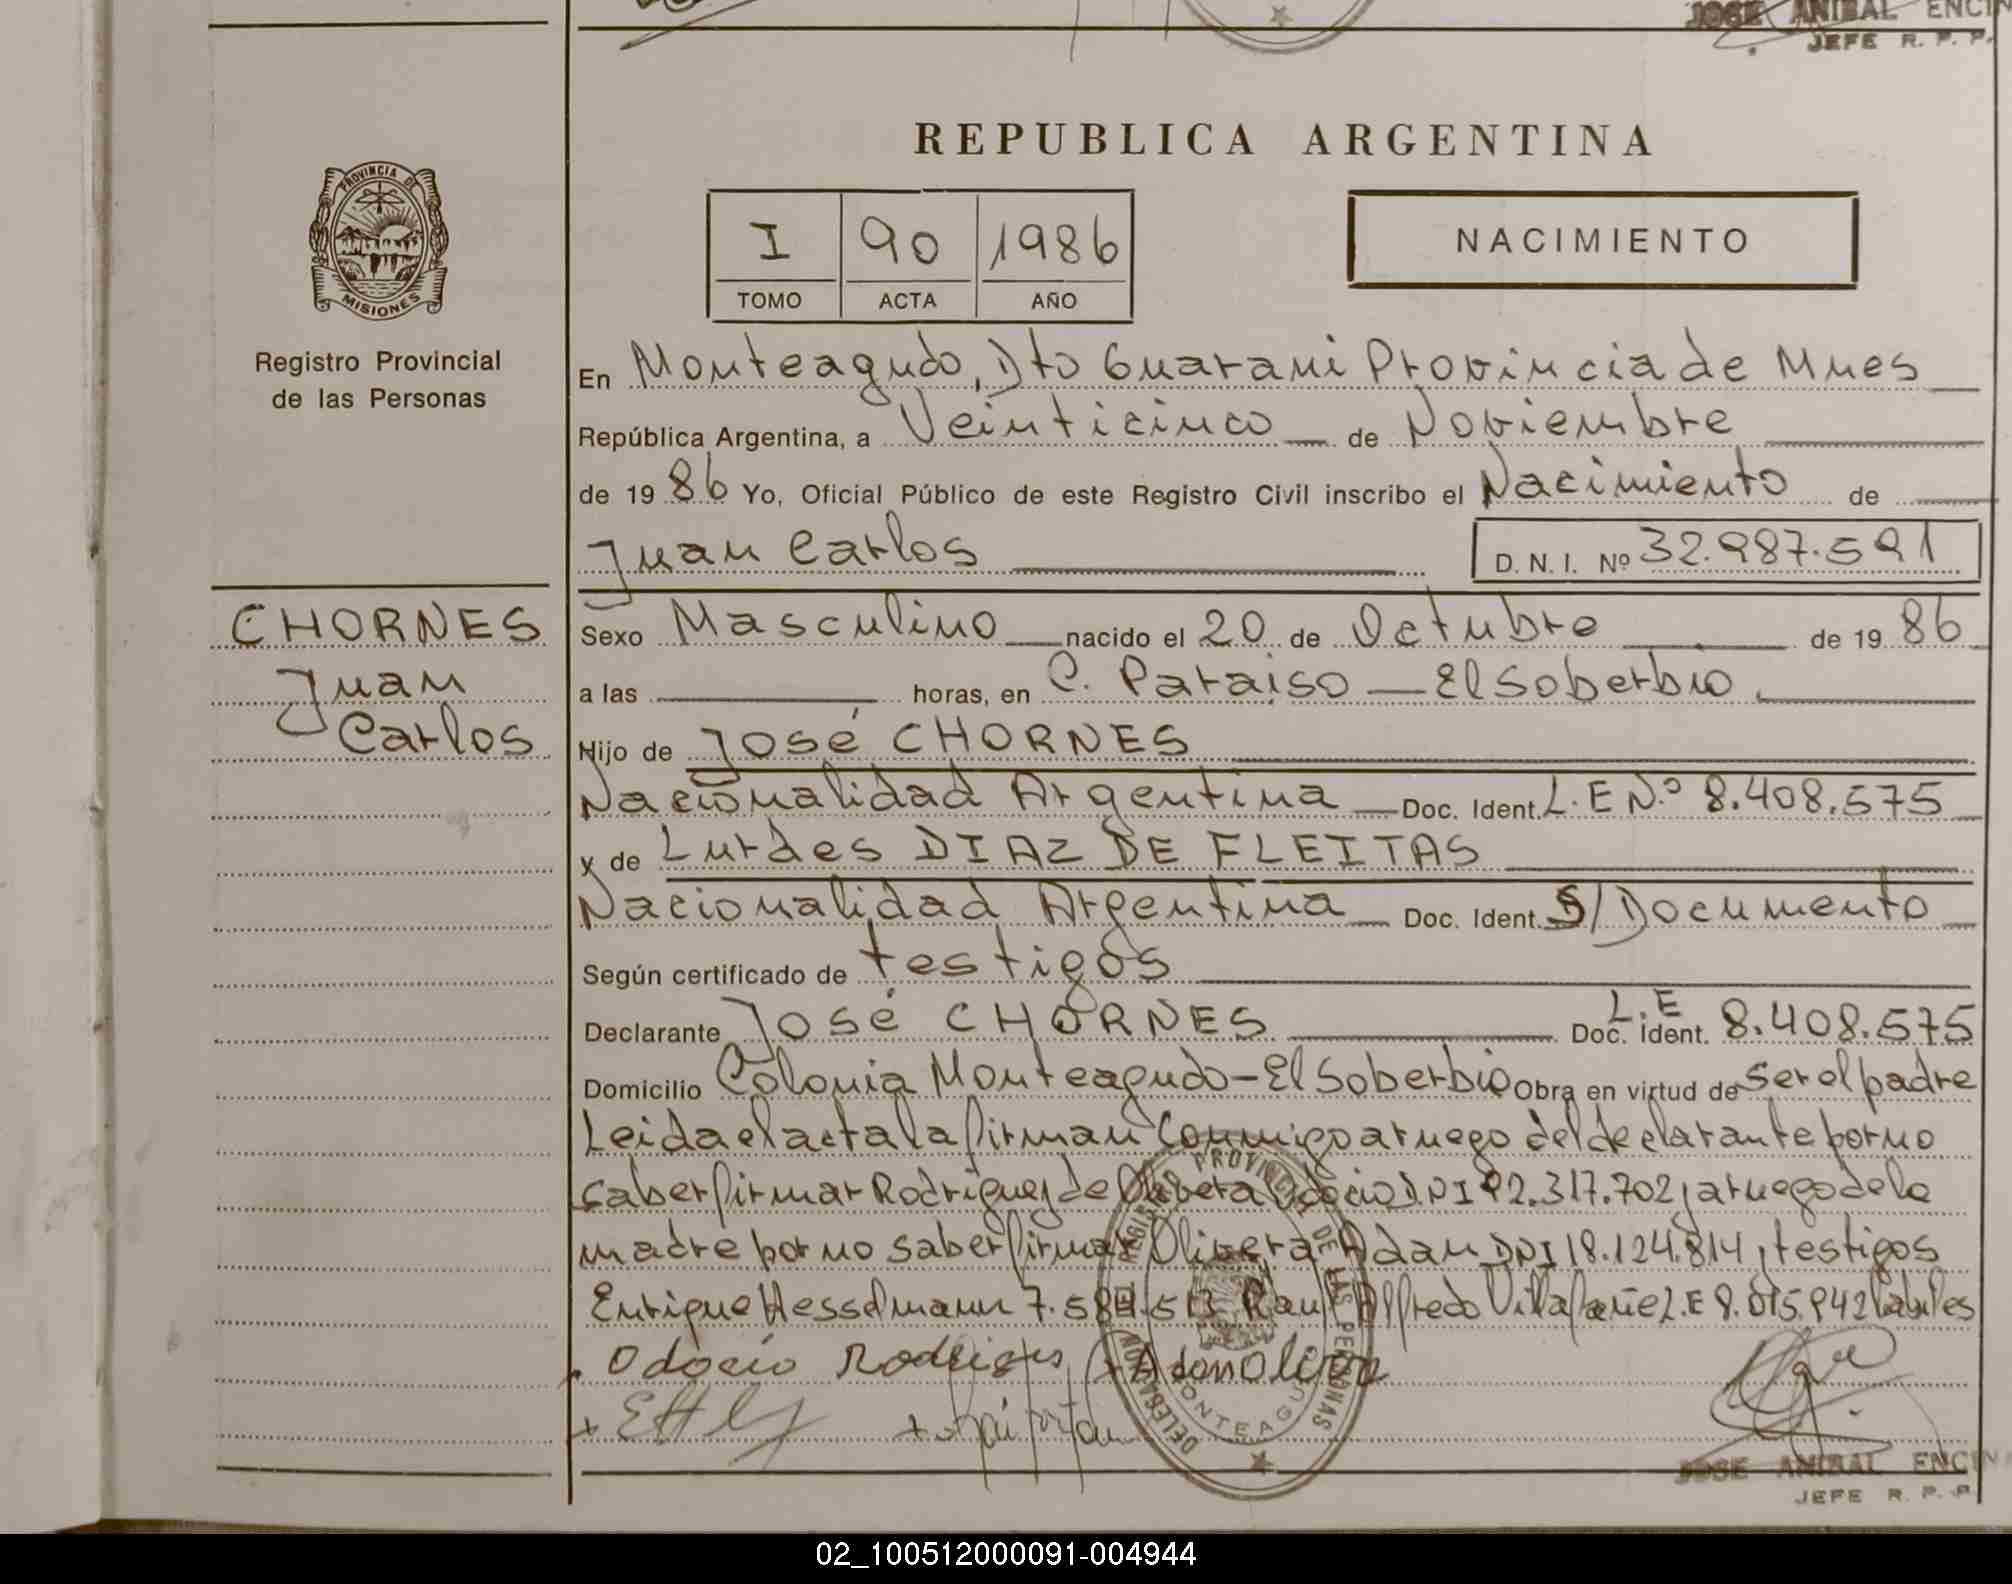 JOSE ANIBAL ENCIN
JEFE R. P. P.
REPUBLICA ARGENTINA
PROVINCIA DE
MISIONES
Registro Provincial
de las Personas
I 90 1986
TOMO ACTA AÑO
NACIMIENTO
En Monteagudo, Dto Guarani Provincia de Mnes
República Argentina, a Veinticinco de Noviembre
de 19 86 Yo, Oficial Público de este Registro Civil inscribo el Nacimiento de
Juan Carlos D. N. I. Nº 32.987.591
CHORNES
Juan
Carlos
Sexo Masculino nacido el 20 de Octubre de 19 86
a las horas, en C. Paraiso - El Soberbio
Hijo de José CHORNES
Nacionalidad Argentina Doc. Ident. L.E N.º 8.408.575
y de Lurdes DIAZ DE FLEITAS
Nacionalidad Argentina Doc. Ident. S/Documento
Según certificado de testigos
Declarante José CHORNES Doc. Ident. L.E 8.408.575
Domicilio Colonia Monteagudo - El Soberbio Obra en virtud de ser el padre
Leida el acta la firman Conmigo a ruego del declarante por no
saber firmar Rodriguez de Olivera Odocio DNI 92.317.702, a ruego de la
madre por no saber firmar Olivera Adan DNI 18.124.814, testigos
Enrique Hesselmann Raul Alfredo Villafañe L.E 8.015.942
Odocio Rodrigues + Adan Oliver
DELEGACION REGISTRO PROVINCIAL DE LAS PERSONAS
MONTEAGUDO
JOSE ANIBAL ENCIN
JEFE R. P. P.
02_100512000091-004944